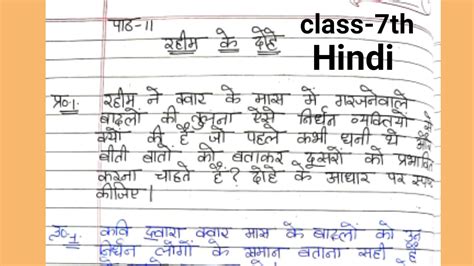 पाठ-11
class-7th
रहीम के दोहे
Hindi
प्र०1. रहीम ने क्वार के मास में गरजनेवाले
बादलों की तुलना ऐसे निर्धन व्यक्तियों
क्यों की है जो पहले कभी धनी थे और
बीती बातों को बताकर दूसरों को प्रभावि
करना चाहते हैं? दोहे के आधार पर स्पष्ट
कीजिए।
उ०1. कवि द्वारा क्वार मास के बादलों को उन
निर्धन लोगों के समान बताना सही है